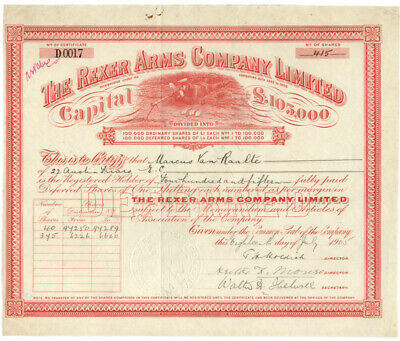 No OF CERTIFICATE
D0017
No OF SHARES
415
THE REXER ARMS COMPANY LIMITED
Capital £105,000
DIVIDED INTO
100,000 ORDINARY SHARES OF £1 EACH Nos 1 TO 100,000
100,000 DEFERRED SHARES OF 1/- EACH Nos 1 TO 100,000
This is to Certify that Marcus Van Raalte
of 22 Austin Friars E.C
is the Registered Holder of Four hundred and fifteen fully paid
Deferred Shares of One Shilling each numbered as per margin in
THE REXER ARMS COMPANY LIMITED
subject to the Memorandum and Articles of
Association of the Company.
Number of Shares
Distinctive Nos
From
To
40 94250 94289
375 6226 6600
Given under the Common Seal of the Company
this Eighteenth day of July 1905
DIRECTOR
DIRECTOR
SECRETARY
NOTE. NO TRANSFER OF ANY OF THE SHARES COMPRISED IN THIS CERTIFICATE WILL BE REGISTERED UNTIL THE CERTIFICATE HAS BEEN DELIVERED AT THE COMPANY'S OFFICE